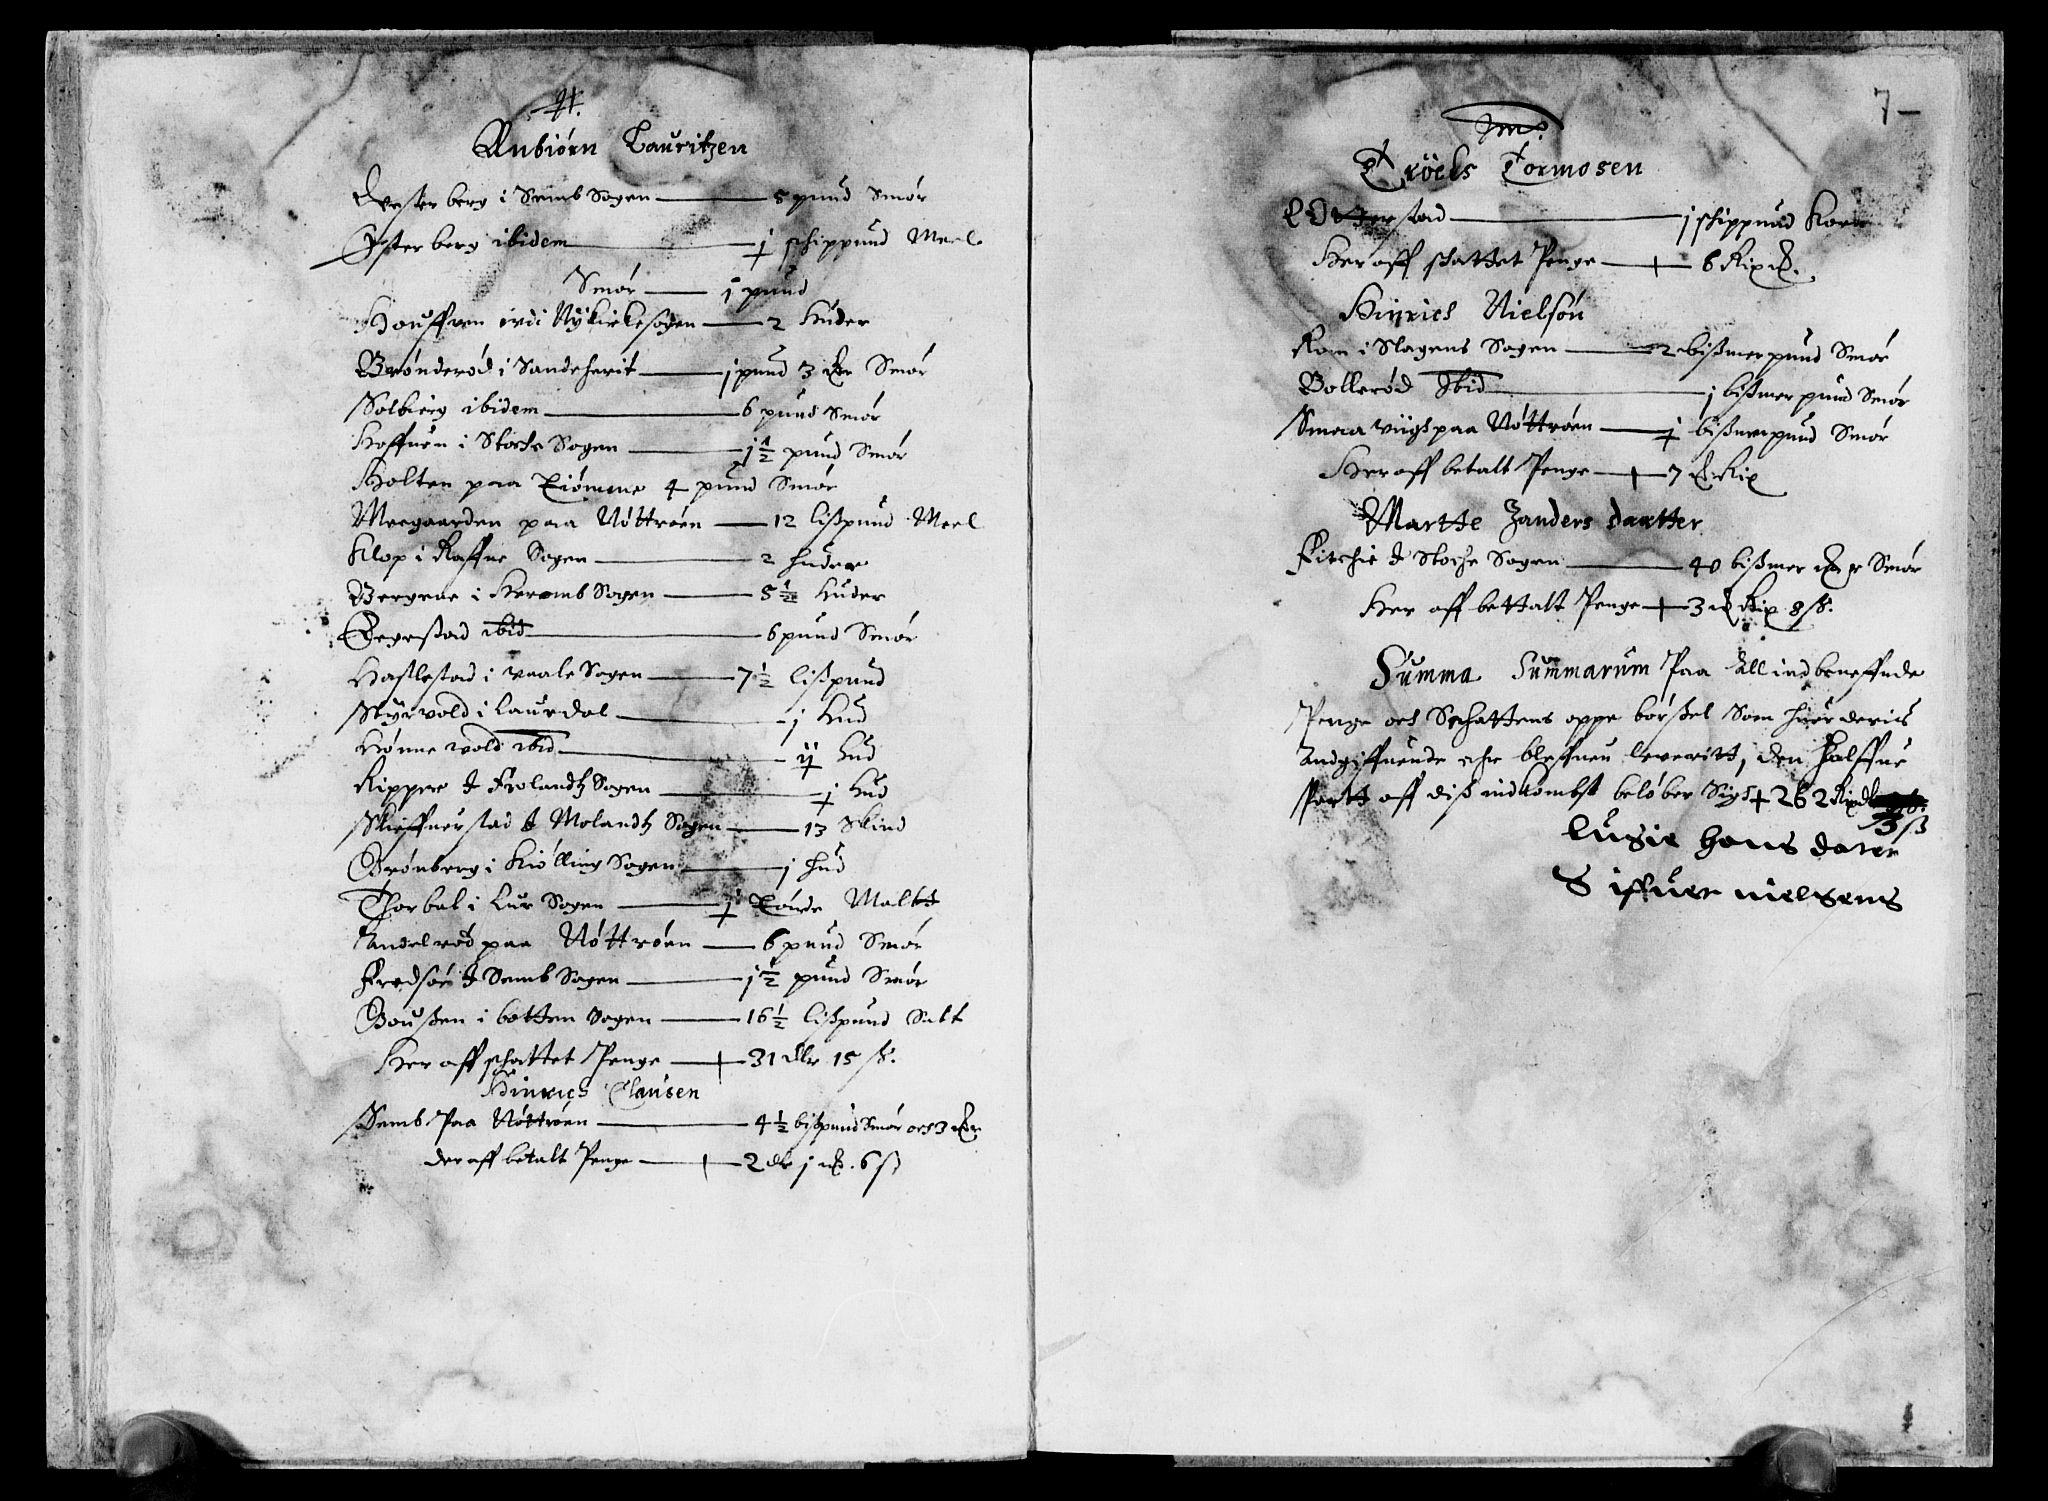 Anbiørn Lauritzen
Vester berg i Semb Sogen 5 pund Smør
Øster berg ibidem j schippund Meel
Smør j pund
Houffuen i Nÿkirkesogen 2 Huder
Brønderød i Sandeherit j pund 3 Smør
Solberg ibidem 6 pund Smør
Hoffuen i Stoche Sogen j½ pund Smør
Holten paa Tiømme 4 pund Smør
Meegaarden paa Nøttrøen 12 lißpund Meel
Klop i Raffne Sogen 2 huder
Bergene i Heromb Sogen 5½ Huder
Fegestad ibid 6 pund Smør
Haslestad i vaale Sogen 7½ lißpund
Styrvold i Laurdal j Hud
Hønne vold ibid Hud
Rippere I Frolandtz Sogen j Hud
Skieffuerstad I Molandtz Sogen 13 Skind
Grønberg i Kiølling Sogen j hud
Thorbel i Lur Sogen j Tønde Maltt
Andelrød paa Nøttrøen 6 pund Smør
Fredsøe I Semb Sogen j½ pund Smør
Goußen i botten Sogen 16½ lißpund Salt
Her aff schattet Penge 31 dlr 15 ß.
Hinrich Clausen
Semb Paa Nøttrøen 4½ bißpund Smør och 3
der aff betalt Penge 2 dlr j 6 ß
7
Troels Tormosen
j schippund Korn
Her aff schattet Penge 6 Rix
Hinrich Nielsøn
Rom i Slagens Sogen 2 bißmerpund Smør
Bollerød Ibid j bißmer pund Smør
Smaa viigs paa Nøttrøen j bißmerpund Smør
Her aff betalt Penge 7 Rix
Martte Zanders daatter
Fitchie I Stoche Sogen 40 bißmer Smør
Her aff bettalt Penge 3 Rix 8 ß.
Summa Summarum Paa All ind beneffnde
Penge och Schattens oppe børßel Som hier deris
Andgiffuende ehre bleffuen leveritt, den halffue
Partt aff diß indkombst beløber Sigh 262 Rixd
3 ß
lusie hans dater
Siffuer nielsens